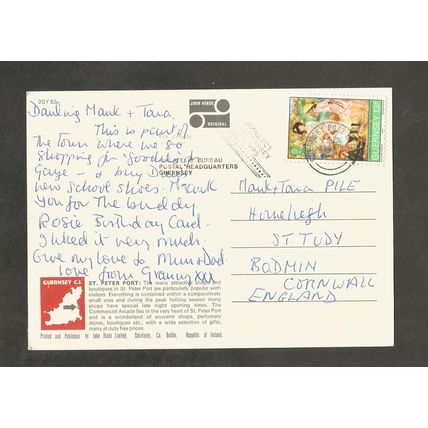 2GY 52
JOHN HINDE
ORIGINAL
Darling Mark + Tara
This is part of
the Town where we go
shopping for 'goodies' +
& buy
new school shoes. Thank
you for the
Rosie Birthday Card
I liked it very much
Give my love to Mum + Dad
love from Granny xxx
BUREAU
POSTAL HEADQUARTERS
GUERNSEY
GUERNSEY 13p
Mark + Tara PILE
Homeleigh
ST TUDY
BODMIN
CORNWALL
ENGLAND
GUERNSEY C.I.
ST. PETER PORT: The many attractive shops and
boutiques in St. Peter Port are particularly popular with
visitors. Everything is contained within a comparatively
small area and during the peak holiday season many
shops have special late night opening times. The
Commercial Arcade lies in the very heart of St. Peter Port
and is a wonderland of souvenir shops, perfumery
stores, boutiques etc., with a wide selection of gifts,
many at duty free prices.
Printed and Published by John Hinde Limited, Cabinteely, Co. Dublin, Republic of Ireland.